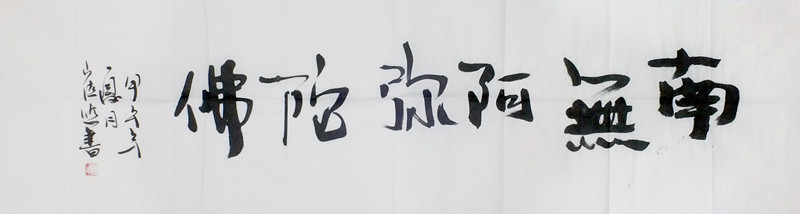 南無阿弥陀佛
甲午年
夏月
書